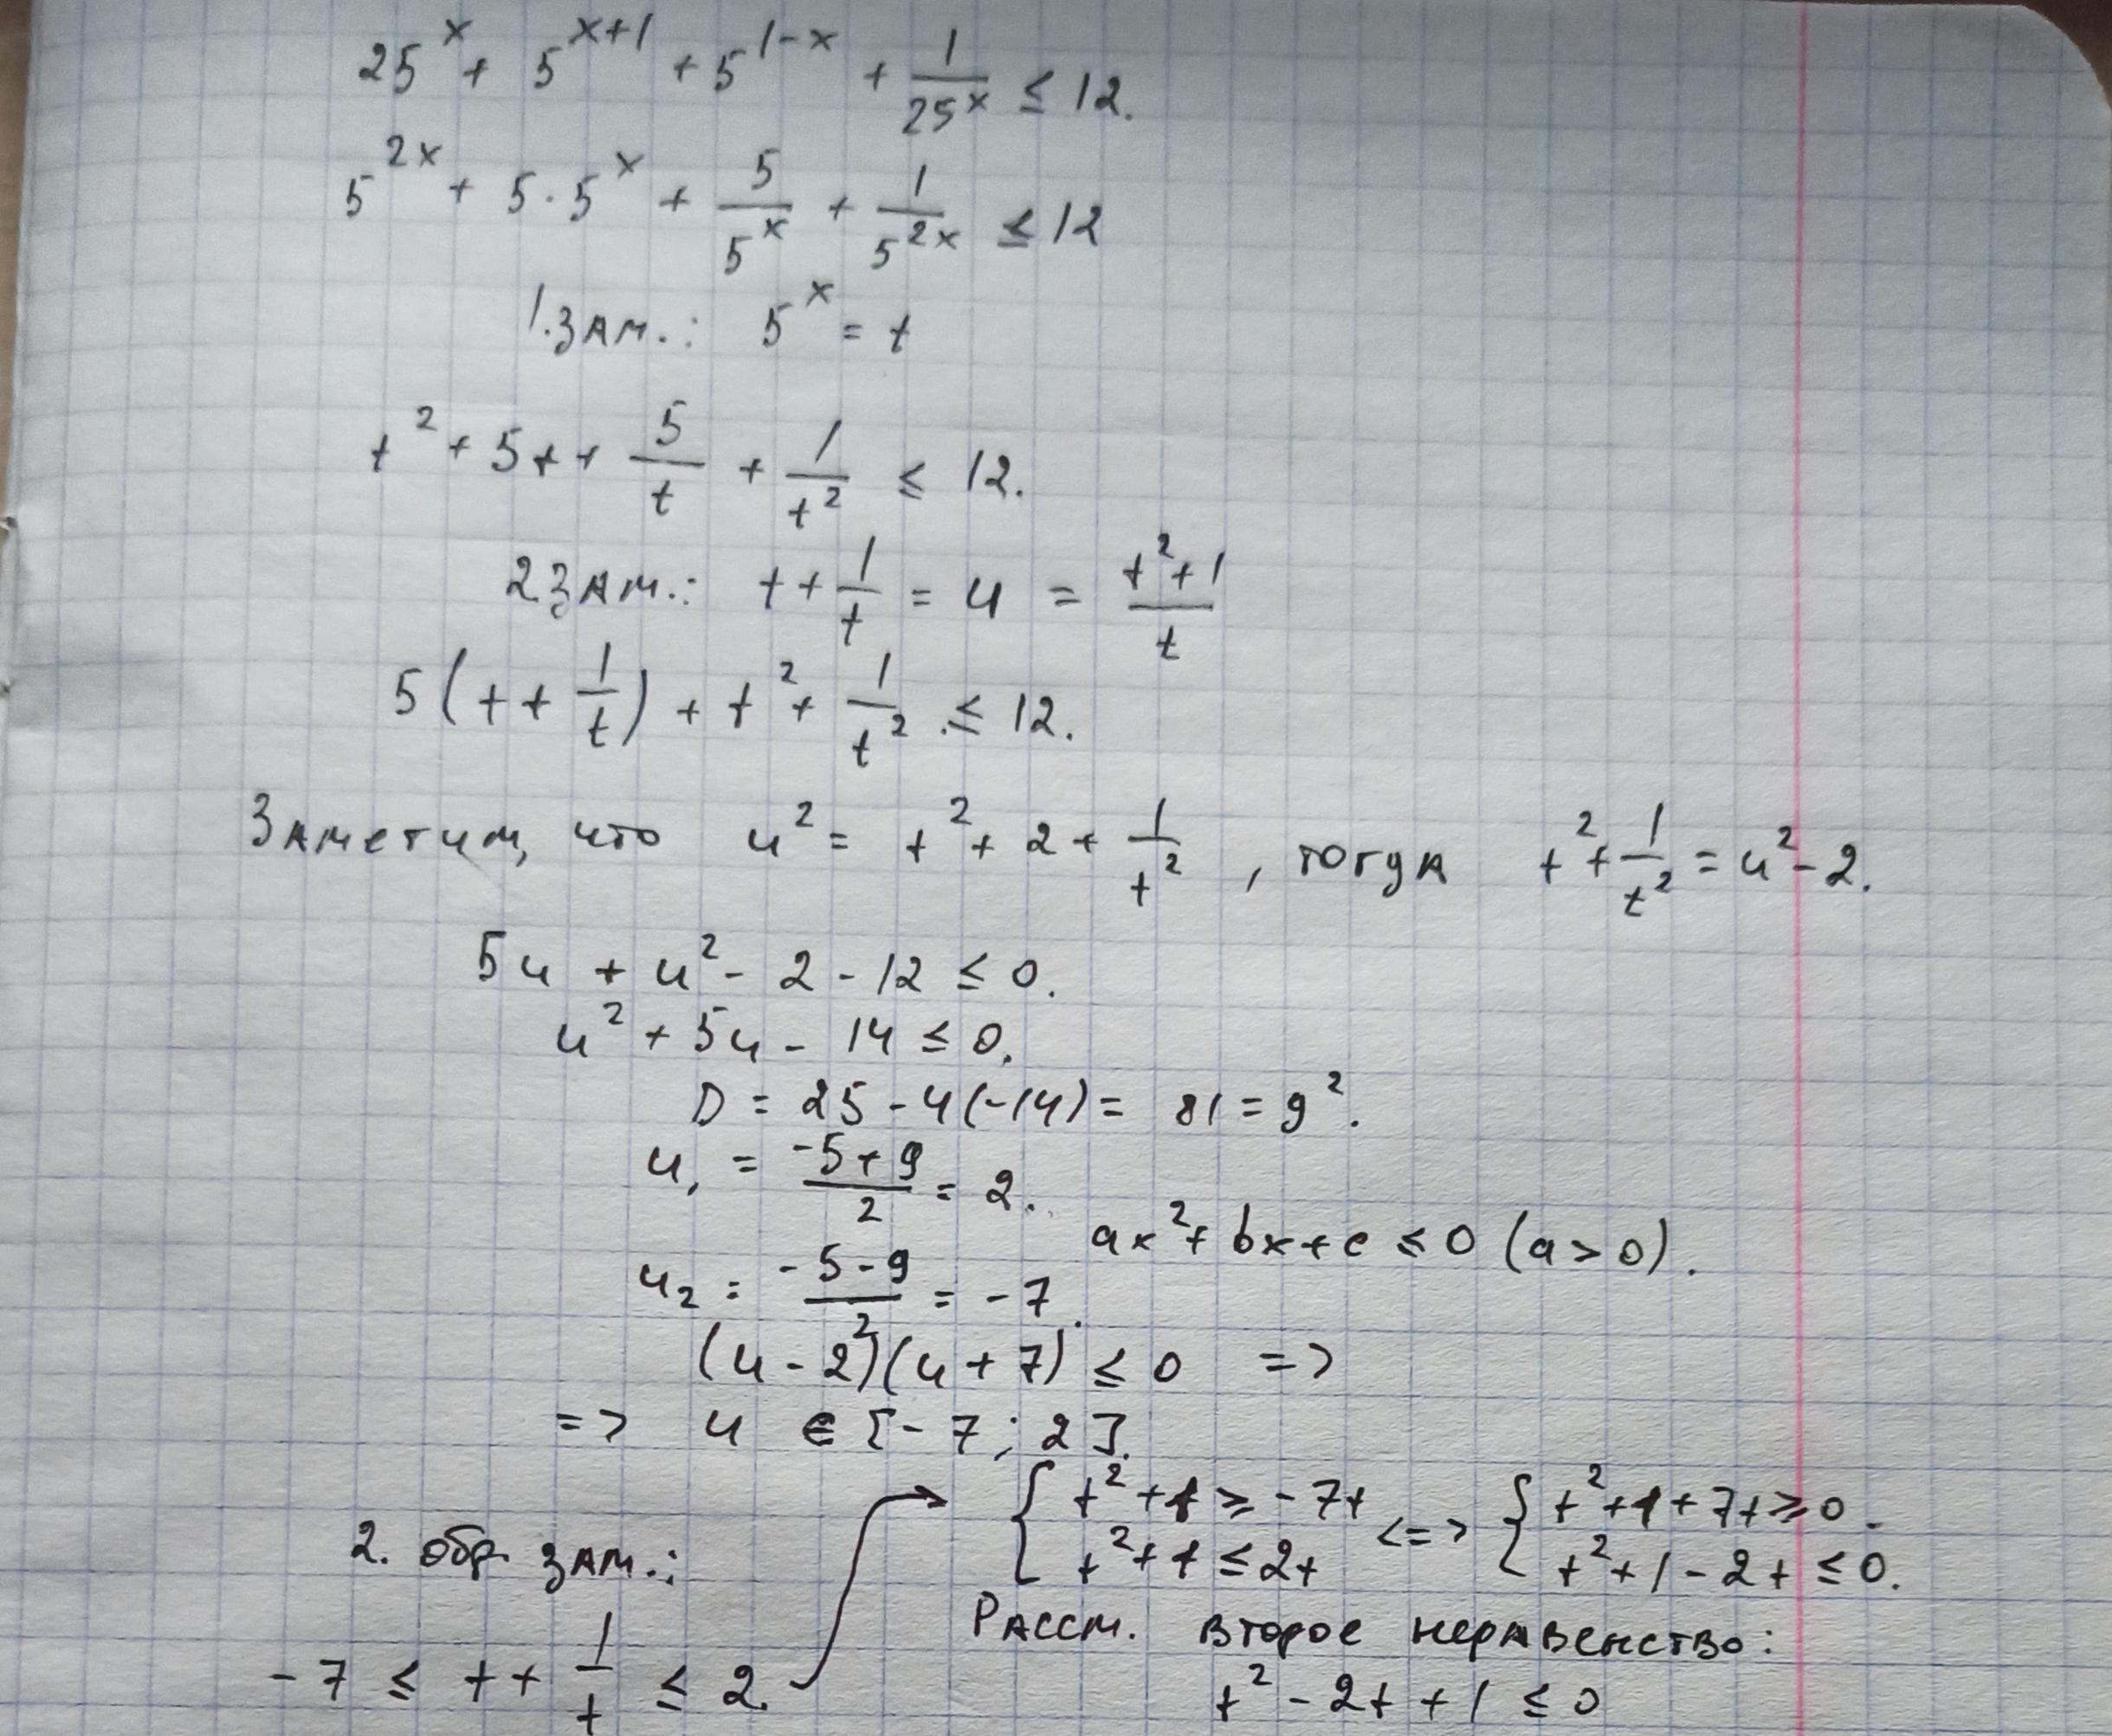 25^x + 5^(x+1) + 5^(1-x) + 1/25^x ≤ 12.
5^(2x) + 5·5^x + 5/5^x + 1/5^(2x) ≤ 12
1.зам.: 5^x = t
t² + 5t + 5/t + 1/t² ≤ 12.
2зам.: t + 1/t = u = (t²+1)/t
5(t + 1/t) + t² + 1/t² ≤ 12.
Заметим, что u² = t² + 2 + 1/t², тогда t² + 1/t² = u² - 2.
5u + u² - 2 - 12 ≤ 0.
u² + 5u - 14 ≤ 0.
D = 25 - 4(-14) = 81 = 9².
u₁ = (-5+9)/2 = 2.
ax² + bx + c ≤ 0 (a > 0).
u₂ = (-5-9)/2 = -7.
(u - 2)(u + 7) ≤ 0 =>
=> u ∈ [-7; 2].
2. обр. зам.:
-7 ≤ t + 1/t ≤ 2.
{ t² + 1 ≥ -7t <=> { t² + 1 + 7t ≥ 0.
t² + 1 ≤ 2t t² + 1 - 2t ≤ 0.
Рассм. второе неравенство:
t² - 2t + 1 ≤ 0